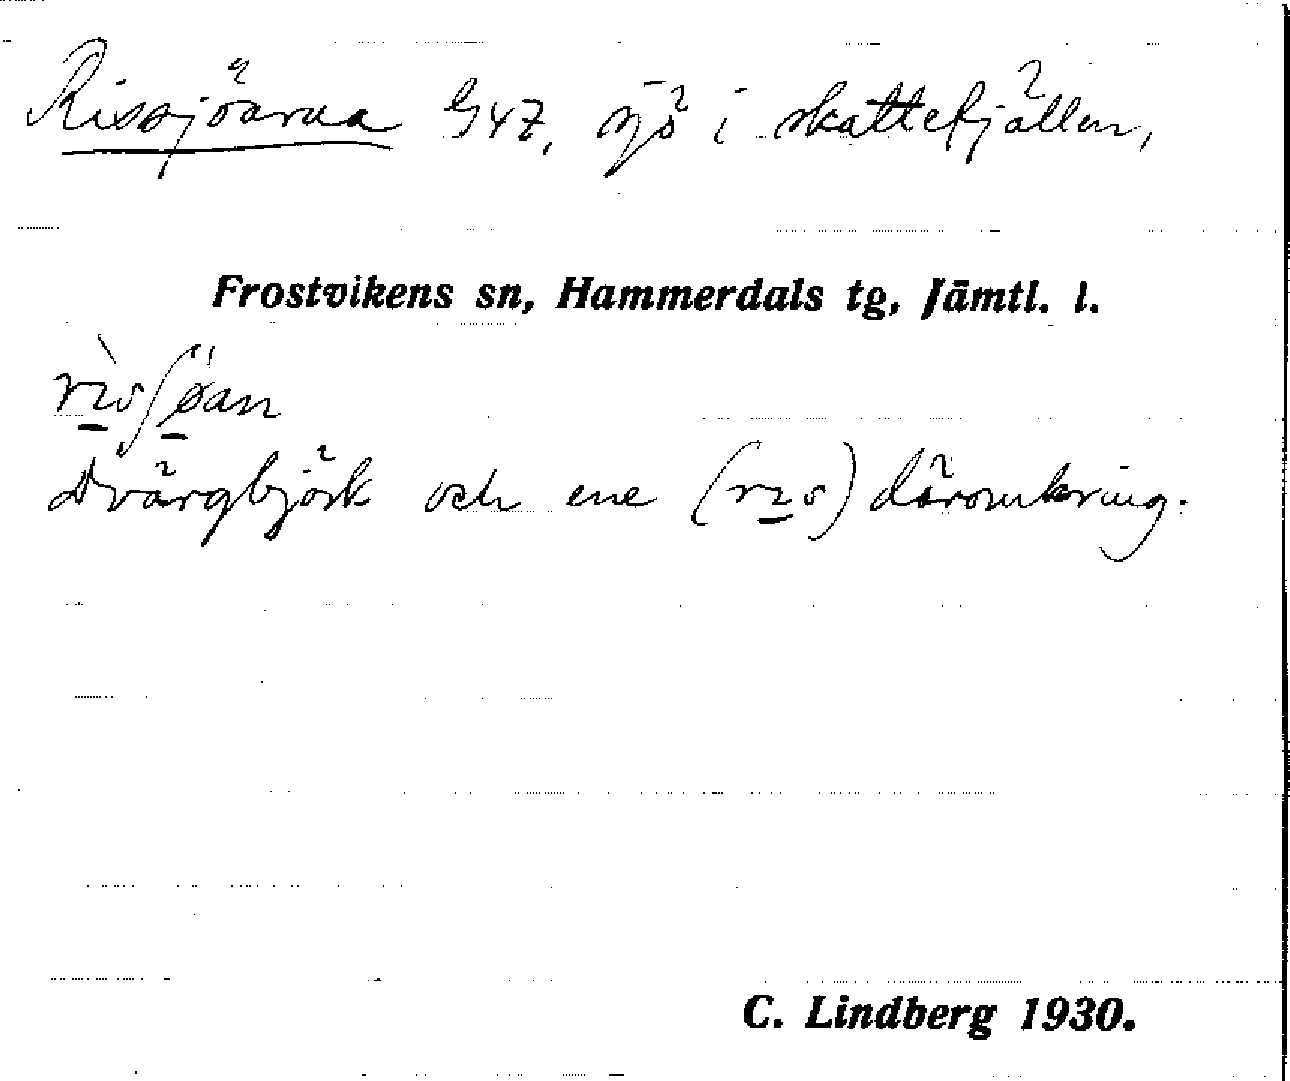 Rissjöarna G4Z, sjö i skattefjällen,
Frostvikens sn, Hammerdals tg, Jämtl. l.
rìsʃøan
Dvärgbjörk och ene (ris) däromkring.
C. Lindberg 1930.